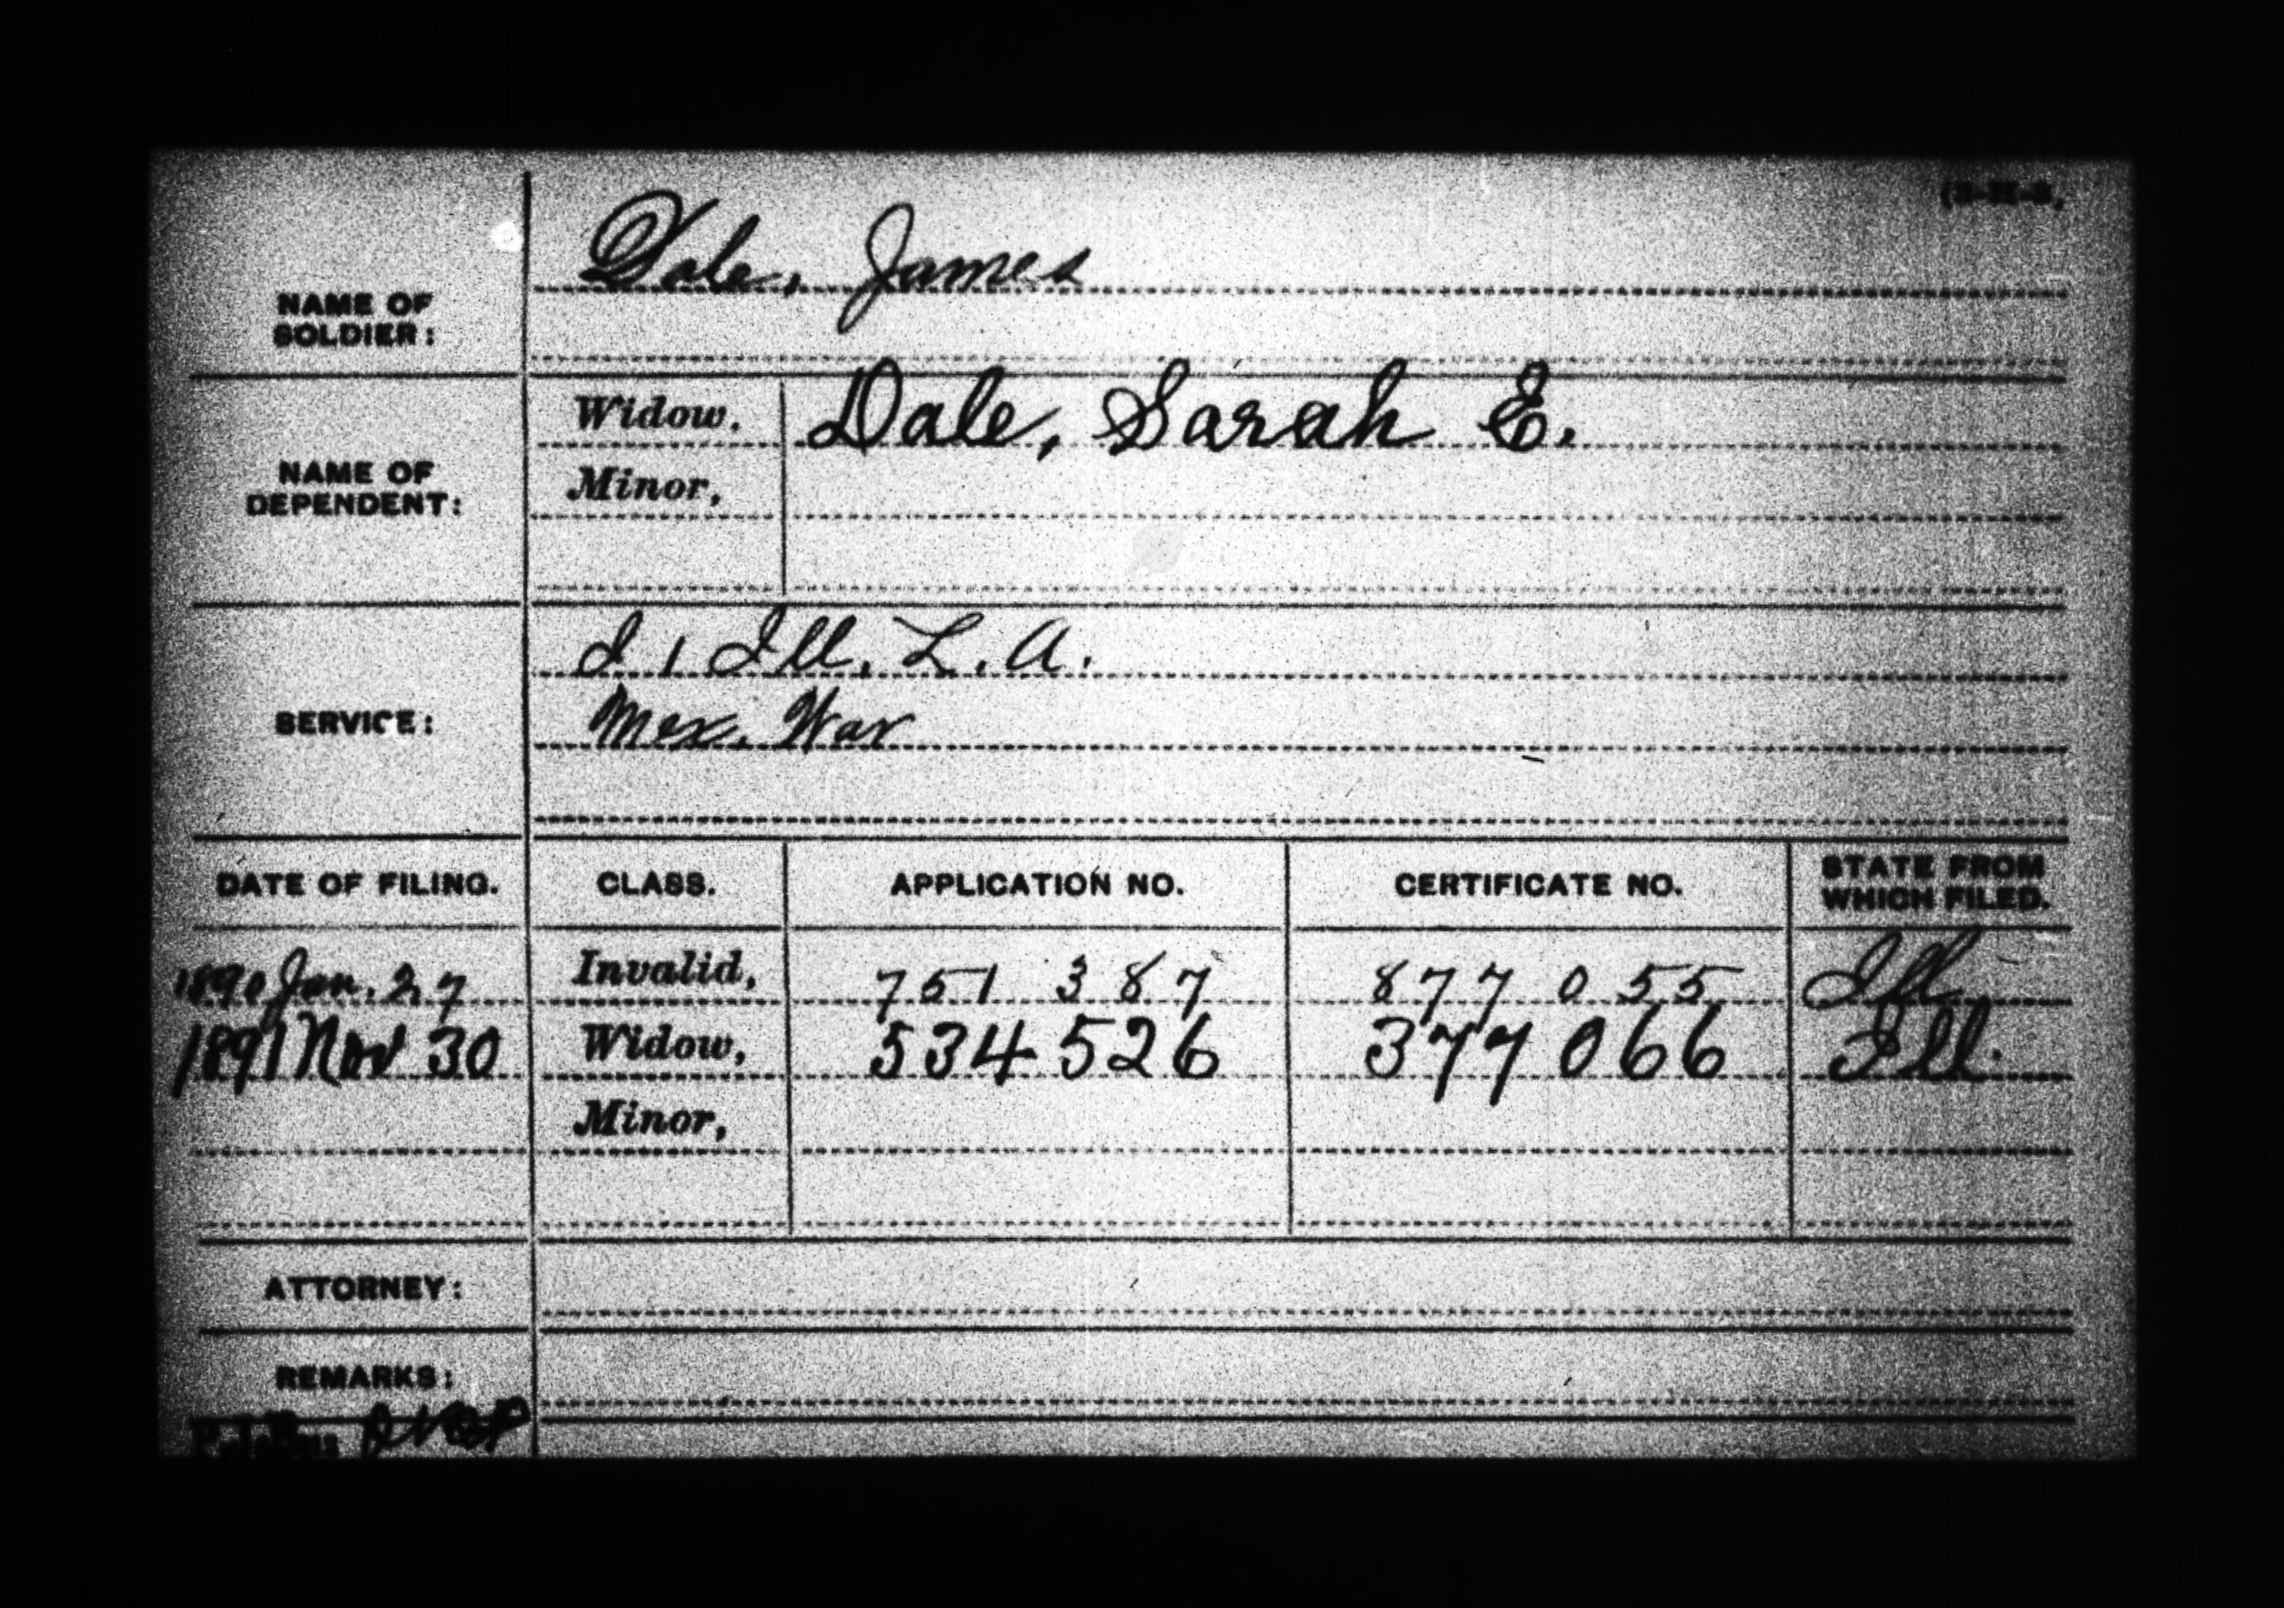 Dale, James
NAME OF
SOLDIER:
Widow. Dale, Sarah E.
NAME OF
DEPENDENT:
Minor,
I 1 Ill. L. A.
SERVICE: Mex. War
DATE OF FILING. CLASS. APPLICATION NO. CERTIFICATE NO. STATE FROM
WHICH FILED.
1890 Jan. 27 Invalid, 751 387 877 055 Ill
1891 Nov 30 Widow, 534 526 377 066 Ill.
Minor,
ATTORNEY:
REMARKS: